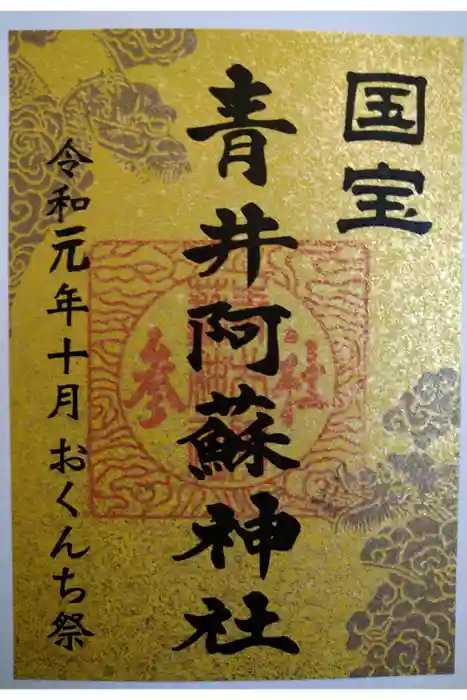 国宝
青井阿蘇神社
令和元年十月おくんち祭